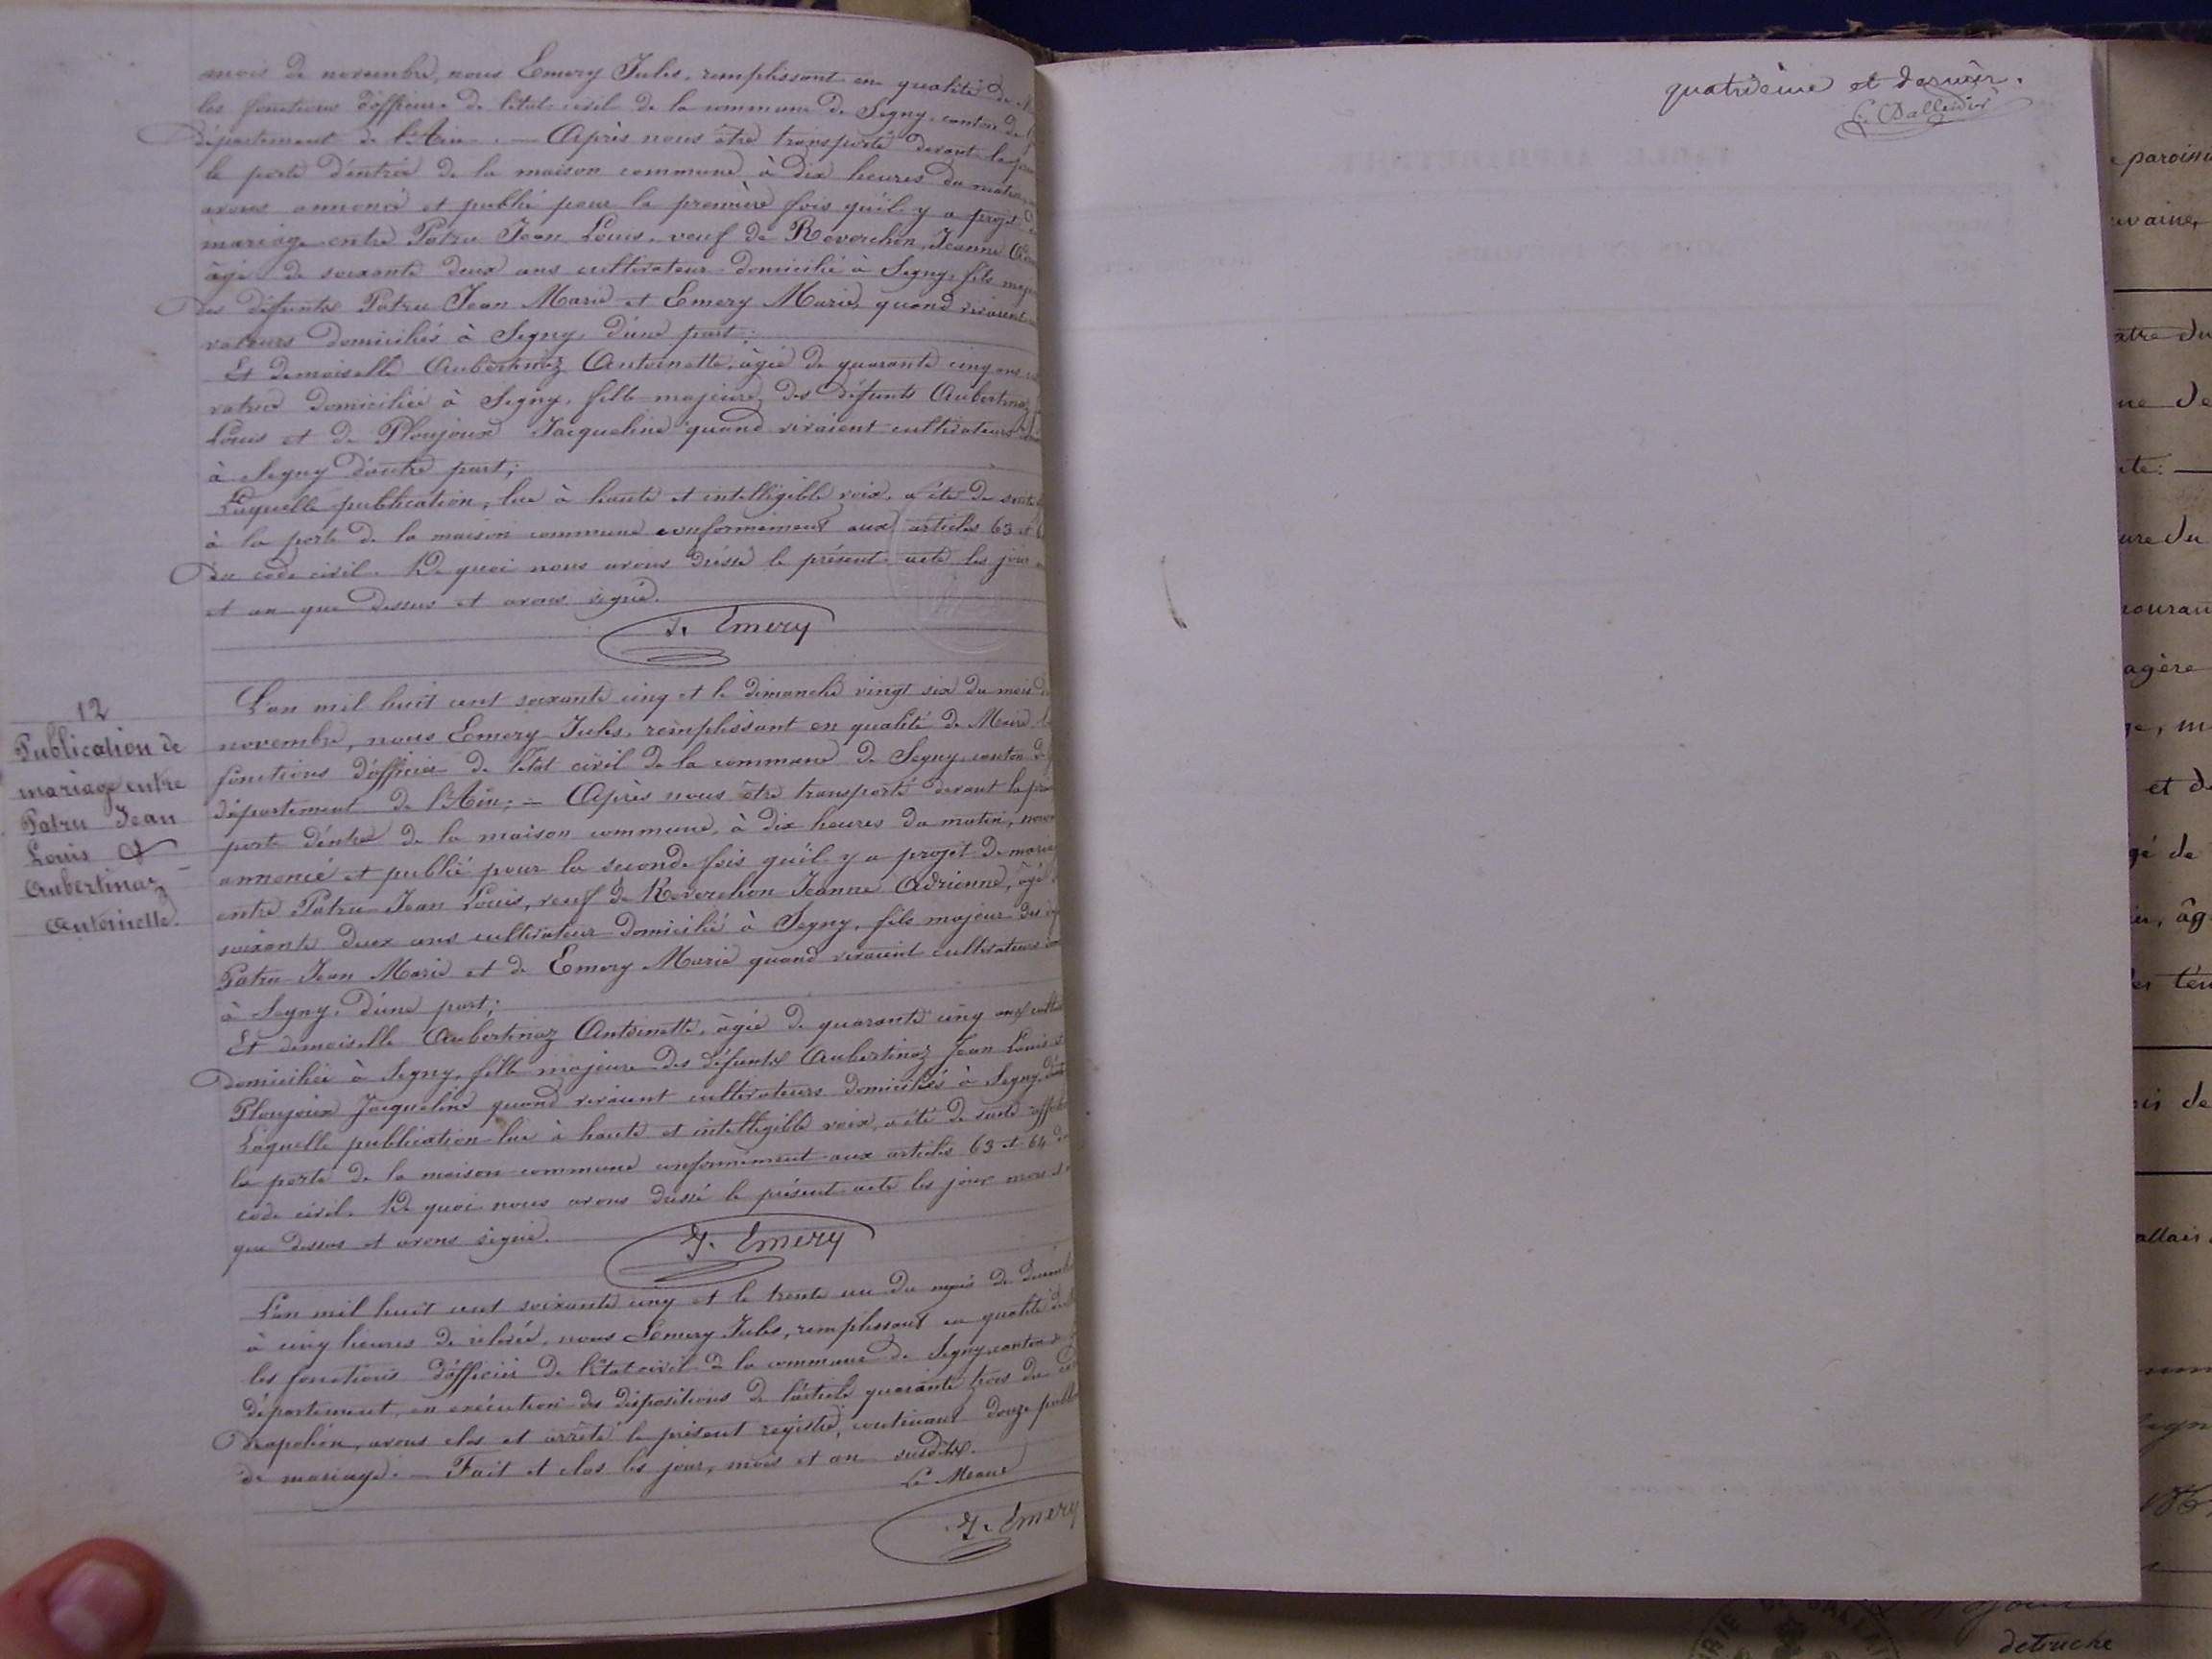 mois de novembre, nous Emery Jules, remplissant en qualité de
les fonctions d'officier de l'état civil de la commune de Segny, canton de
département de l'Ain. — Après nous être transporté devant la
la porte d'entrée de la maison commune, à dix heures du matin,
avons annoncé et publié pour la première fois qu'il y a projet
mariage entre Patru Jean Louis, veuf de Reverchon, Jeanne
âgé de soixante deux ans cultivateur domicilié à Segny, fils
des défunts Patru Jean Marie et Emery Marie, quand vivaient
vateurs domiciliés à Segny, d'une part;
Et demoiselle Aubertinaz Antoinette, âgée de quarante cinq ans
vatrice domiciliée à Segny, fille majeure des défunts Aubertinaz
Louis et de Ploujoux Jacqueline quand vivaient cultivateurs
à Segny d'autre part;
Laquelle publication, lue à haute et intelligible voix, a été de suite
à la porte de la maison commune conformément aux articles 63 et
du code civil. De quoi nous avons dressé le présent acte les jour
et an que dessus et avons signé.
J. Emery
12
Publication de
mariage entre
Patru Jean
Louis &
Aubertinaz
Antoinette.
L'an mil huit cent soixante cinq et le dimanche vingt six du mois de
novembre, nous Emery Jules, remplissant en qualité de Maire
fonctions d'officier de l'état civil de la commune de Segny, canton de
département de l'Ain; — Après nous être transporté devant la
porte d'entrée de la maison commune, à dix heures du matin,
annoncé et publié pour la seconde fois qu'il y a projet de
entre Patru Jean Louis, veuf de Reverchon Jeanne Adrienne, âgé
soixante deux ans cultivateur domicilié à Segny, fils majeur des
Patru Jean Marie et de Emery Marie quand vivaient cultivateurs
à Segny, d'une part;
Et demoiselle Aubertinaz Antoinette, âgée de quarante cinq ans
domiciliée à Segny, fille majeure des défunts Aubertinaz Jean Louis et
Ploujoux Jacqueline quand vivaient cultivateurs domiciliés à Segny,
Laquelle publication lue à haute et intelligible voix, a été de suite
la porte de la maison commune conformément aux articles 63 et 64
code civil. De quoi nous avons dressé le présent acte les jour mois et
que dessus et avons signé.
J. Emery
L'an mil huit cent soixante cinq et le trente un du mois de
à cinq heures de relevée, nous Emery Jules, remplissant en qualité de
les fonctions d'officier de l'état civil de la commune de Segny, canton de
département, en exécution des dispositions de l'article quarante trois du
Napoléon, avons clos et arrêté le présent registre, contenant douze
de mariage. — Fait et clos les jour, mois et an susdits.
Le Maire
J. Emery
quatrième et dernier.
paroiss
atre du
ne de
ure du
agère
et de
gé de
âg
allais
détruche